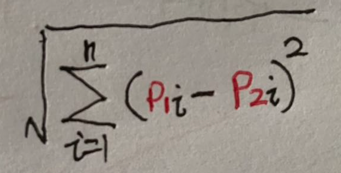 √∑ⁿᵢ₌₁ (P₁i − P₂i)²